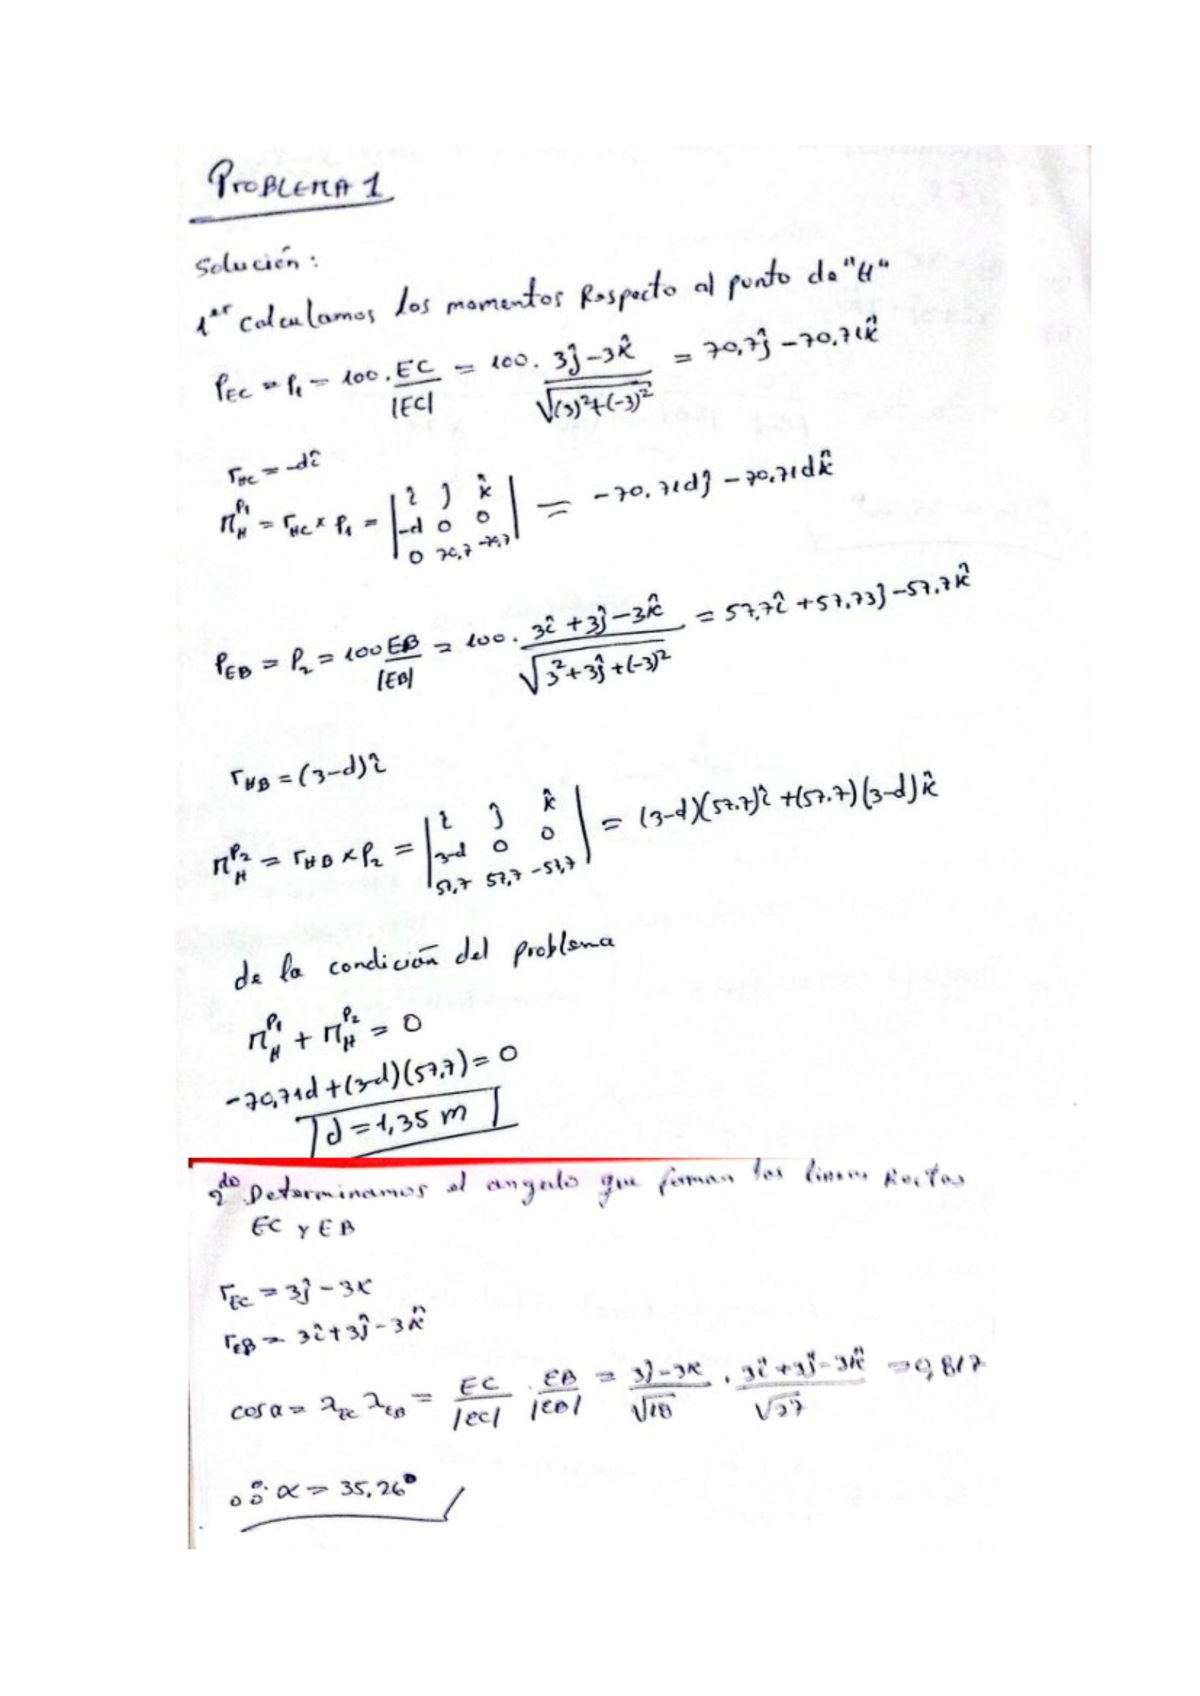 PROBLEMA 1
Solución:
1er calculamos los momentos Respecto al punto de "H"
P_EC = P_1 = 100 . EC/|EC| = 100 . (3ĵ - 3k̂)/√((3)²+(-3)²) = 70,7ĵ - 70,71k̂
r_HC = -dî
M_H^P1 = r_HC x P_1 = | î ĵ k̂ | = -70,71dĵ - 70,71dk̂
-d 0 0
0 70,7 -70,7
P_EB = P_2 = 100 EB/|EB| = 100 . (3î + 3ĵ - 3k̂)/√(3²+3ĵ+(-3)²) = 57,7î + 57,73ĵ - 57,7k̂
r_HB = (3-d)î
M_H^P2 = r_HB x P_2 = | î ĵ k̂ | = (3-d)(57.7)î + (57.7)(3-d)k̂
3-d 0 0
57,7 57,7 -57,7
de la condición del problema
M_H^P1 + M_H^P2 = 0
-70,71d + (3-d)(57,7) = 0
d = 1,35 m
2do Determinamos el angulo que forman las lineas Rectas
EC y EB
r_EC = 3ĵ - 3k
r_EB = 3î + 3ĵ - 3k̂
cos α = λ_EC λ_EB = EC/|EC| . EB/|EB| = (3ĵ - 3k)/√18 . (3î + 3ĵ - 3k̂)/√27 = 0,817
∴ α = 35,26°